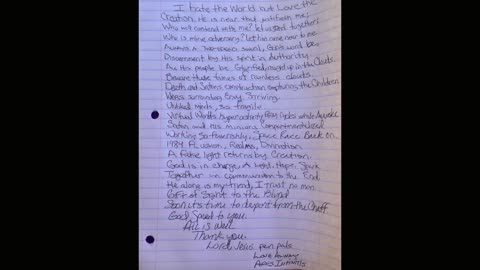 I hate the World but Love the
Creation. He is near that justifieth me;
Who will contend with me? let us stand together:
Who is mine adversary? let him come near to me.
Always A Two-edged sword, Gods word be.
Discernment by His spirit in Authority.
All His people be Glorified, caught up in the Clouds.
Beware these times of rainless clouds.
Death and Satans construction capturing the Children
Webs surrounding Gray
minds, so fragile
Virtual Worlds while
Satan and his minions Compartmentalized
Working So feverishly, Space Race Back on.
1984 Illusion, Realms, Divination
A False light returns by Creation.
God is in charge, A Word, Hope, Spark
Together in communion to the End
He alone is my friend, I trust no man
Gift of Sight to the Blind
Soon its time to depart from the Chaff.
God Speed to you.
All is well
Thank you.
Lord Jesus pen pals
Love Always